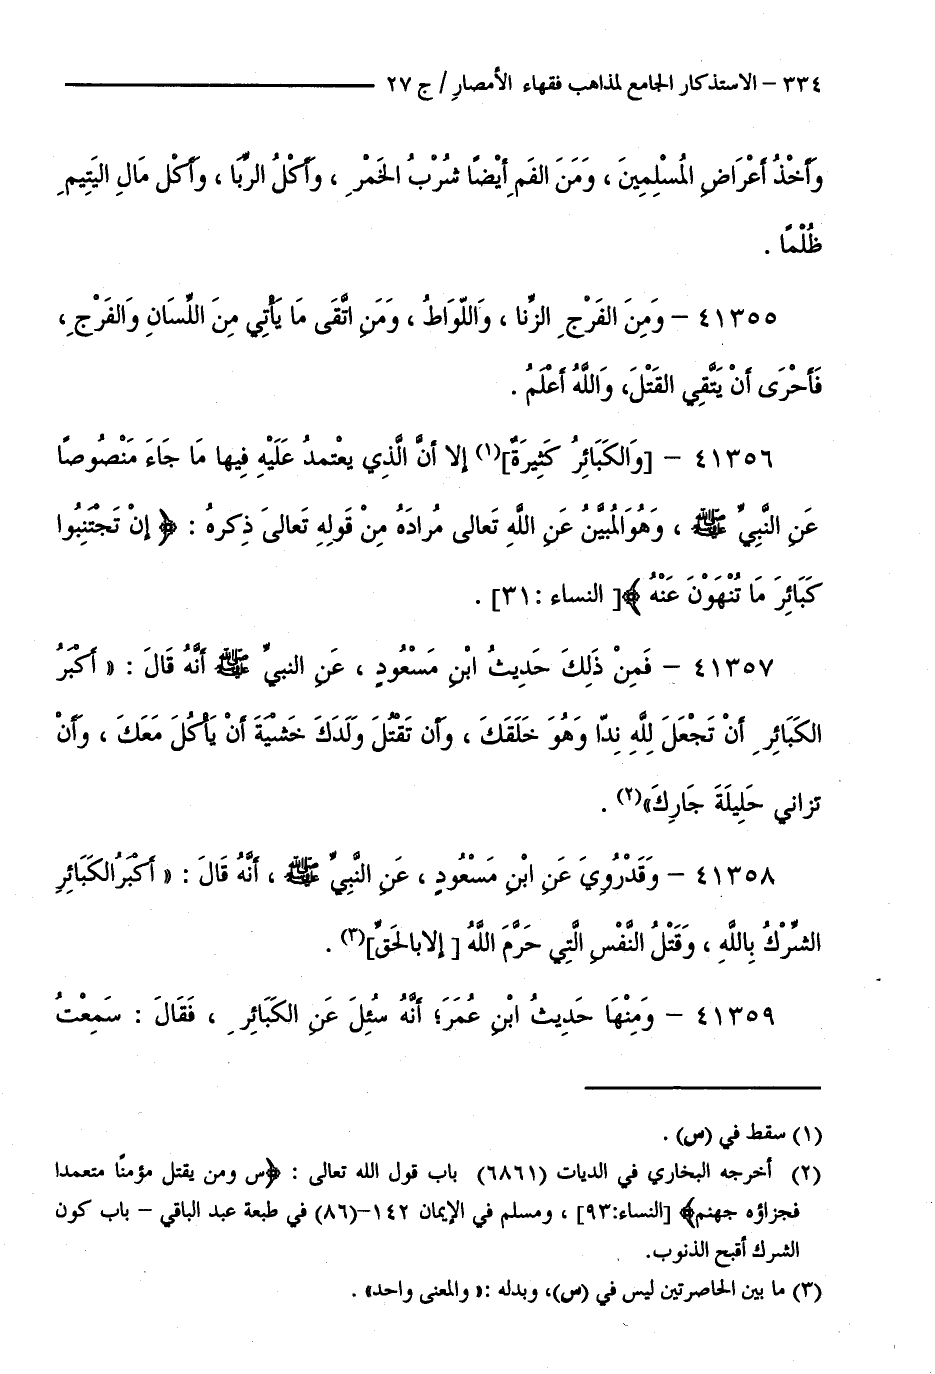 ٣٣٤ – الاستذكار الجامع لمذاهب فقهاء الأمصار / ج ٢٧
وَأَخْذُ أَعْرَاضِ الْمُسْلِمِينَ ، وَمَنَ الفَمِ أَيْضًا شُرْبُ الخَمْرِ ، وَأَكْلُ الرِّبَا ، وَأَكْل مَالِ اليَتِيمِ
ظُلْمًا .
٤١٣٥٥ – وَمِنَ الفَرْجِ الزِّنا ، وَاللّوَاطُ ، وَمَنِ اتَّقَى مَا يَأْتِي مِنَ اللِّسَانِ وَالفَرْجِ ،
فَأَحْرَى أَنْ يَتَّقِي القَتْلَ، وَاللَّهُ أَعْلَمُ .
٤١٣٥٦ – [وَالكَبَائِرُ كَثِيرَةٌ](١) إلا أنَّ الَّذِي يعْتمدُ عَلَيْهِ فِيها مَا جَاءَ مَنْصُوصًا
عَنِ النَّبِيِّ ﷺ ، وَهُوَالمُبَيِّنُ عَنِ اللَّهِ تَعالى مُرَادَهُ مِنْ قَولِهِ تَعالىَ ذِكرهُ : ﴿ إنْ تَجْتَنِبُوا
كَبَائِرَ مَا تُنْهَوْنَ عَنْهُ ﴾[ النساء :٣١] .
٤١٣٥٧ – فَمِنْ ذَلِكَ حَدِيثُ ابْنِ مَسْعُودٍ ، عَنِ النبيِّ ﷺ أَنَّهُ قَالَ : « أَكْبَرُ
الكَبَائِرِ أَنْ تَجْعَلَ لِلَّهِ نِدّا وَهُوَ خَلَقَكَ ، وَأَن تَقْتُلَ وَلَدَكَ خَشْيَةَ أَنْ يَأْكُلَ مَعَكَ ، وَأَنْ
تزاني حَلِيلَةَ جَارِكَ»(٢) .
٤١٣٥٨ – وَقَدْرُوِيَ عَنِ ابْنِ مَسْعُودٍ ، عَنِ النَّبِيِّ ﷺ ، أَنَّهُ قَالَ : « أَكْبَرُالكَبَائِرِ
الشِّرْكُ بِاللَّهِ ، وَقَتْلُ النَّفْسِ الَّتِي حَرَّمَ اللَّهُ [ إلابالحَقِّ](٣) .
٤١٣٥٩ – وَمِنْهَا حَدِيثُ ابْنِ عُمَرَ؛ أَنَّهُ سُئِلَ عَنِ الكَبَائِرِ ، فَقَالَ : سَمِعْتُ
(١) سقط في (س) .
(٢) أخرجه البخاري في الديات (٦٨٦١) باب قول الله تعالى : ﴿س ومن يقتل مؤمنًا متعمدا
فجزاؤه جهنم﴾ [النساء:٩٣] ، ومسلم في الإيمان ١٤٢–(٨٦) في طبعة عبد الباقي – باب كون
الشرك أقبح الذنوب.
(٣) ما بين الحاصرتين ليس في (س)، وبدله :« والمعنى واحد» .